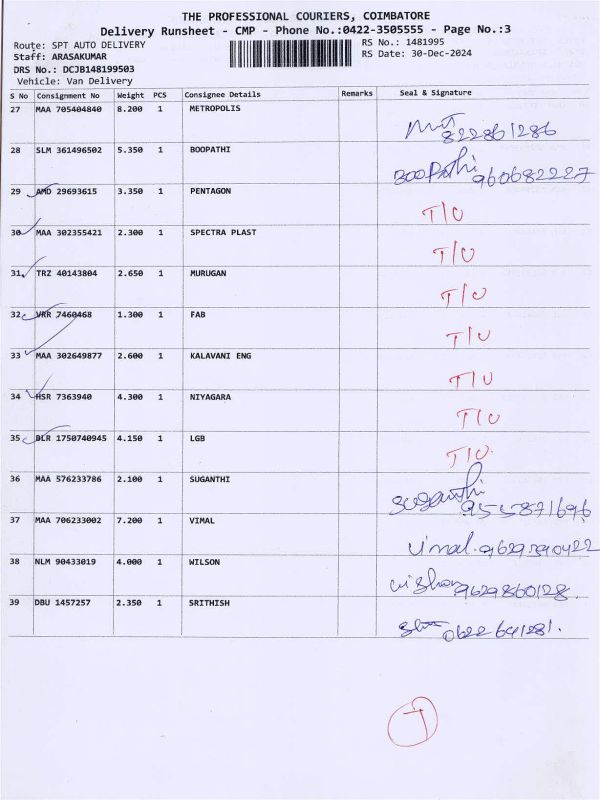 THE PROFESSIONAL COURIERS, COIMBATORE
Delivery Runsheet - CMP - Phone No.:0422-3505555 - Page No.:3
Route: SPT AUTO DELIVERY
RS No.: 1481995
Staff: ARASAKUMAR
RS Date: 30-Dec-2024
DRS No.: DCJB148199503
Vehicle: Van Delivery
S No Consignment No Weight PCS Consignee Details Remarks Seal & Signature
27 MAA 705404840 8.200 1 METROPOLIS
822861286
28 SLM 361496502 5.350 1 BOOPATHI
BOOPathi 960682227
29 AMD 29693615 3.350 1 PENTAGON T/U
30 MAA 302355421 2.300 1 SPECTRA PLAST T/U
31 TRZ 40143804 2.650 1 MURUGAN T/U
32 VRR 7460468 1.300 1 FAB T/U
33 MAA 302649877 2.600 1 KALAVANI ENG T/U
34 HSR 7363940 4.300 1 NIYAGARA T/U
35 BLR 1750740945 4.150 1 LGB T/U
36 MAA 576233786 2.100 1 SUGANTHI
Suganthi 9555871696
37 MAA 706233002 7.200 1 VIMAL
Vimal. 9629590422
38 NLM 90433019 4.000 1 WILSON
9629860128.
39 DBU 1457257 2.350 1 SRITHISH
0622641281.